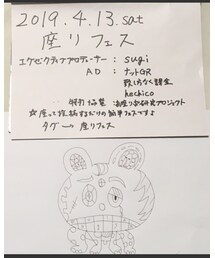 2019.4.13.sat
座りフェス
エグゼクティブプロデューサー：sugi
AD：ナットQR
hechico
☆座って投稿するだけの簡単フェスですよ
タグ→座りフェス